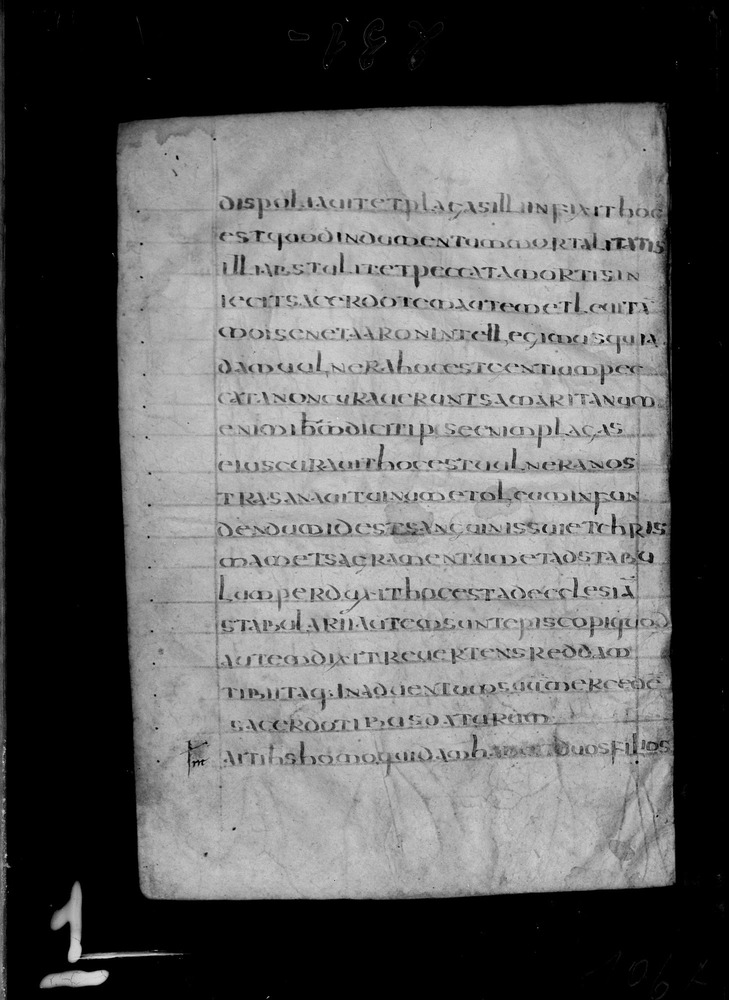 dispoliauit et plagas illi infixit hoc
est quod indumentum mortalitatis
illi abstulit et peccata mortis in
iecit sacerdotem autem et leuitā
moisen et aaron intellegimus quia
dam uulnera hoc est gentium pec
cata non curauerunt samaritanum
enim
plagas
eius curauit hoc est uulnera nos
tra sanauit uinum et oleum infun
dendum id est sanguinis sui et chris
mam et sacramentum et ad stabu
lum perduxit hoc est ad ecclesiā
stabularii autem sunt episcopi quod
autem dixit reuertens reddam
tibi itaq: in aduentum suū mercedē
sacerdotibus daturum
ait ihs homo quidam duos filios